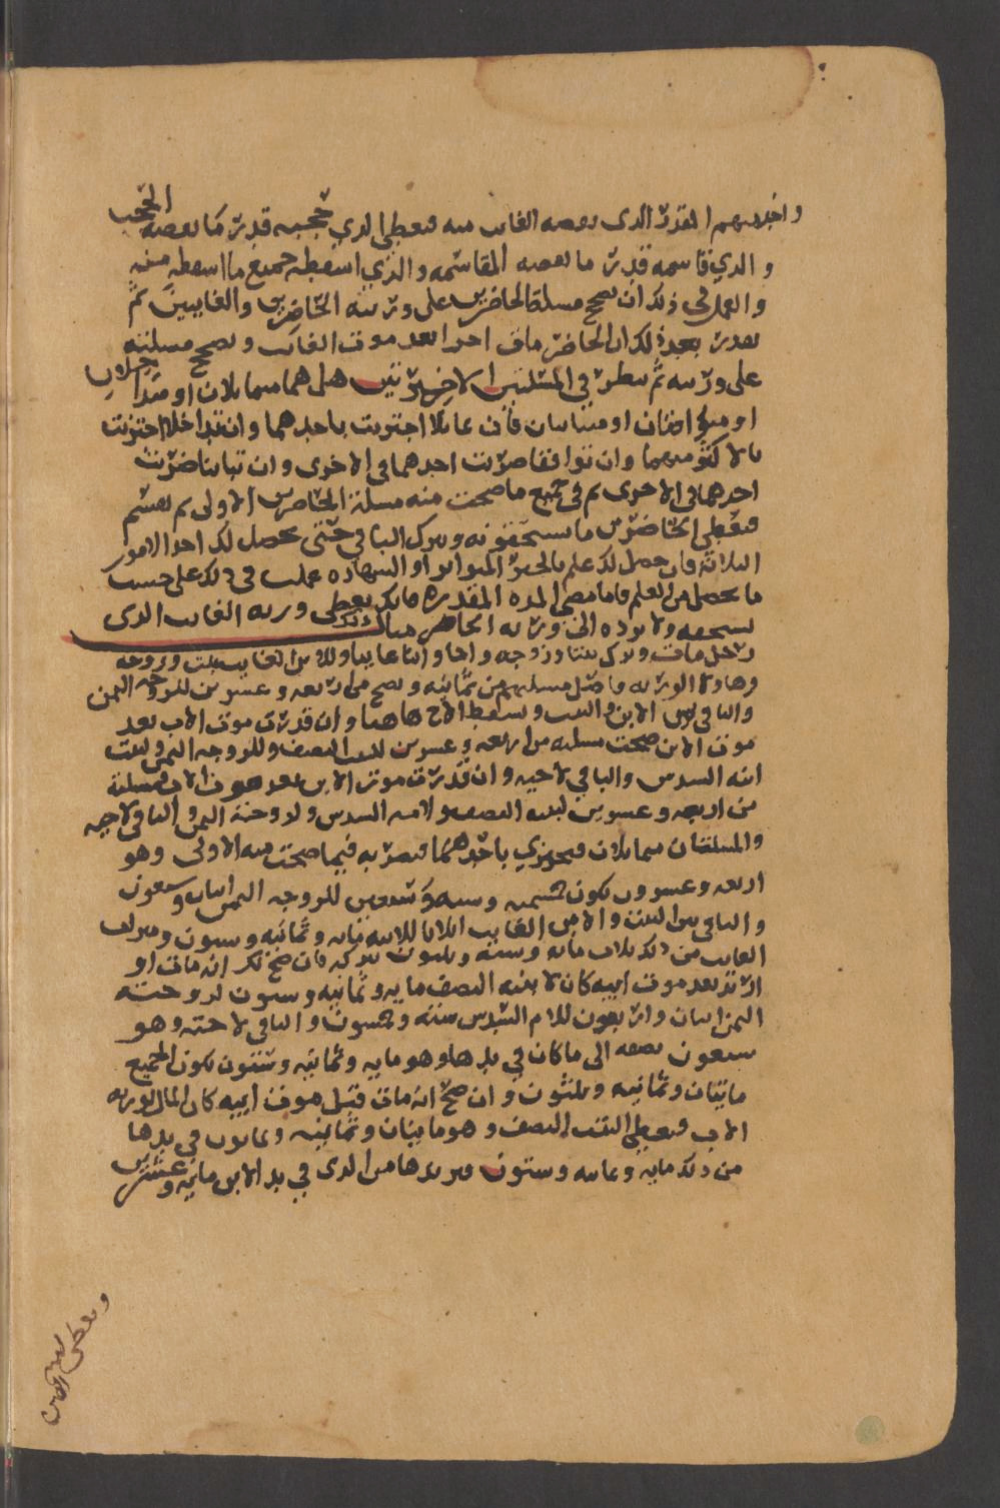 واخد منهم القدر الذى نقصه الغايب منه فيعطى الدي حجبه قدر ما نقصه الحجب
والدي قاسمه قدر ما نقصه المقاسمه والذي اسقطه جميع ما اسقطه منه
والعمل في ذلك ان تصحح مسلة الحاضرين على ورثته الحاضرين والغايبين ثم
تقدر بعد ذلك ان الحاضر مات احدا بعد موت الغايب وتصحح مسلته
على ورثته ثم تنظر في المسلتين الاخيرتين هل هما متماثلان او متداخلان
او متوافقان او متباينان فان تماثلا اجتزيت باحدهما وان تداخلا اجتزيت
بالاكثر منهما وان توافقا ضربت احدهما في الاخرى وان تباينا ضربت
احدهما في الاخرى ثم في جميع ما صحت منه مسلة الحاضرين الاولى ثم تقسم
فتعطي الحاضرين ما يستحقونه ويترك الباقي حتى يحصل لك احد الامور
الثلاثة فان حصل لك علم بالخبر المتواتر او الشهاده عملت في ذلك على حسب
ما يحصل من العلم فاما مضي المده المقدره فانك تعطى ورثه الغايب الدى
يستحقه ولا يرده الى ورثه الحاضر مثال ذلك
رجل مات وترك بنتا وزوجه واخا وابنا غايبا وللابن الغايب بنت وزوجه
وهاولا الورثه فاصل مسلتهم من ثمانيه وتصح من اربعه وعشرين للزوجه الثمن
والباقي بين الابن والبنت ويسقط الاخ هاهنا وان قدرت موت الاب بعد
موت الابن صحت مسلته من اربعه وعشرين للبنت النصف وللزوجه الثمن ولبنت
ابنه السدس والباقي لاخيه وان قدرت موت الابن بعد موت الاب فمسلته
من اربعه وعشرين لبنته النصف ولامه السدس ولزوجته الثمن والباقي لاخته
والمسلتان متماثلان فتجتزي باحدهما فتضربه فيما صحت منه الاولى وهو
اربعه وعشرون يكون خمسميه وسته وسبعين للزوجه الثمن اثنان وسبعون
والباقي بين البنت والابن الغايب اثلاثا للابنه مايه وثمانيه وستون ويترك
الغايب من ذلك ثلاث مايه وسته وثلثون تتركه فان صح لك انه مات او
ارتد بعد موت ابيه كان لابنته النصف مايه وثمانيه وستون لزوجته
الثمن اثنان واربعون للام السدس سته وخمسون والباقي لاخته وهو
سبعون تضفه الى ما كان في يدها وهو مايه وثمانيه وستون يكون الجميع
مايتان وثمانيه وثلثون وان صح انه مات قبل موت ابيه كان المال لورثه
الاب فتعطي البنت النصف وهو مايتان وثمانيه وثمانون في يدها
من ذلك مايه وثمانيه وستون وتزيدها من الدى في يد الابن مايه وعشرين
وتعطى بنت الابن